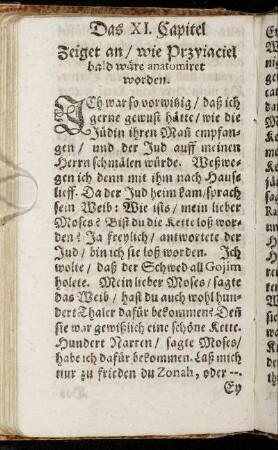 Das XI. Capitel
Zeiget an / wie Przyiaciel
bald wäre anatomiret
worden.
ICh war so vorwitzig / daß ich
gerne gewust hätte / wie die
Jüdin ihren Mañ empfan-
gen / und der Jud auff meinen
Herrn schmälen würde. Weßwe-
gen ich denn mit ihn nach Hause
lieff. Da der Jud heim kam / sprach
sein Weib: Wie ists / mein lieber
Moses? Bist du die Kette loß wor-
den? Ja freylich / antwortete der
Jud / bin ich sie loß worden. Ich
wolte / daß der Schwed all Gojim
holete. Mein lieber Moses / sagte
das Weib / hast du auch wohl hun-
dert Thaler dafür bekommen? Deñ
sie war gewißlich eine schöne Kette.
Hundert Narren / sagte Moses /
habe ich dafür bekommen. Laß mich
nur zu frieden du Zonah, oder --.
Ey